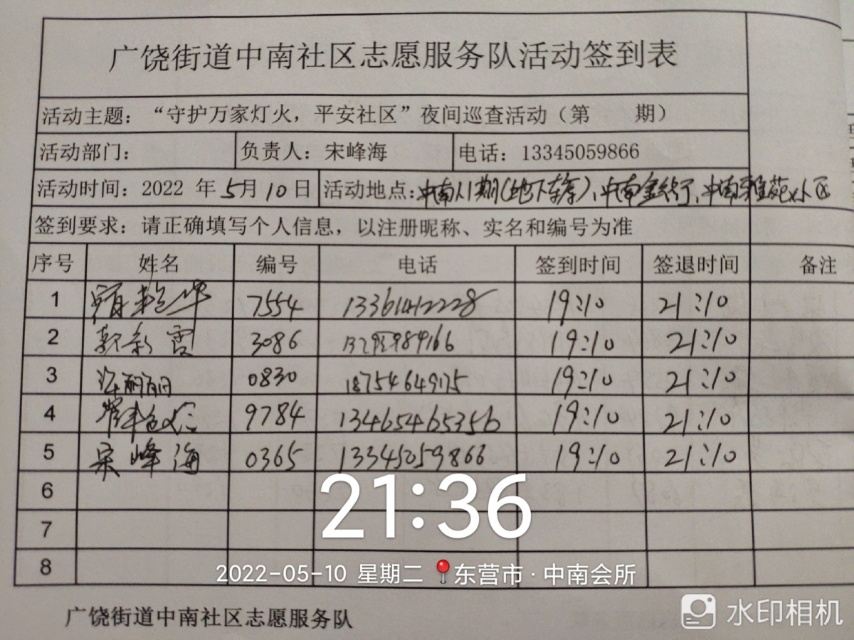 广饶街道中南社区志愿服务队活动签到表
活动主题：“守护万家灯火，平安社区”夜间巡查活动（第 期）
活动部门： 负责人：宋峰海 电话：13345059866
活动时间：2022 年 5月 10 日 活动地点：中南1.1期(地下车库)、中南 、中南雅苑小区
签到要求：请正确填写个人信息，以注册昵称、实名和编号为准
序号 姓名 编号 电话 签到时间 签退时间 备注
1 7554 13361412228 19:10 21:10
2 3086 19:10 21:10
3 0830 18754649175 19:10 21:10
4 9784 13465465356 19:10 21:10
5 宋峰海 0365 13345059866 19:10 21:10
6
7
8
21:36
2022-05-10 星期二 东营市·中南会所
广饶街道中南社区志愿服务队
水印相机